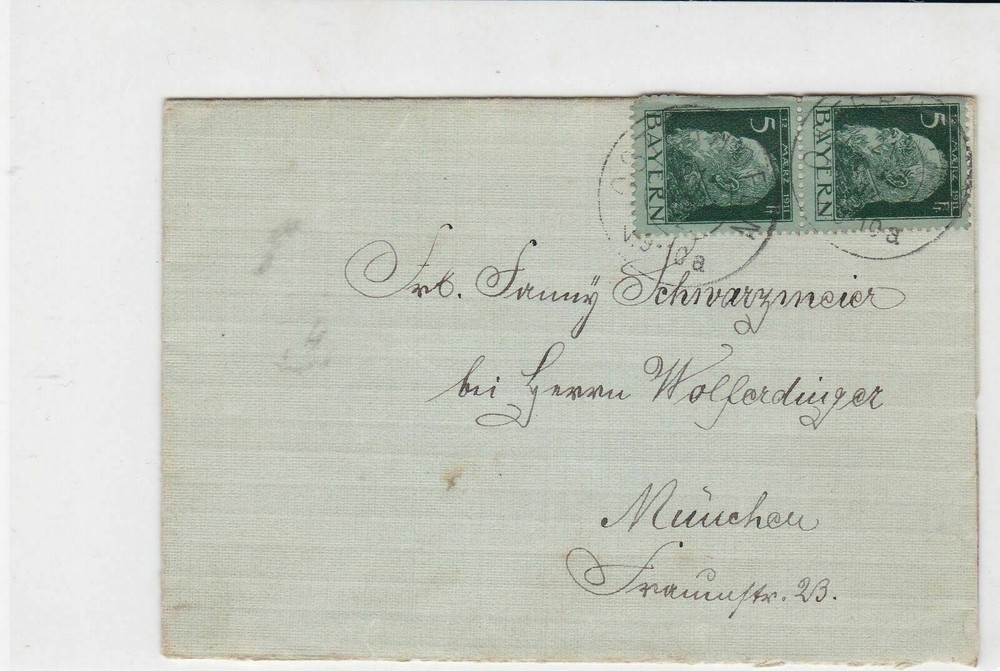 BAYERN 5 Pf. 12. MÄRZ 1911
BAYERN 5 Pf. 12. MÄRZ 1911
10 a
10 a
Frl. Fanny Schwarzmeier
bei Herrn Wolferdinger
München
Fraunstr. 23.